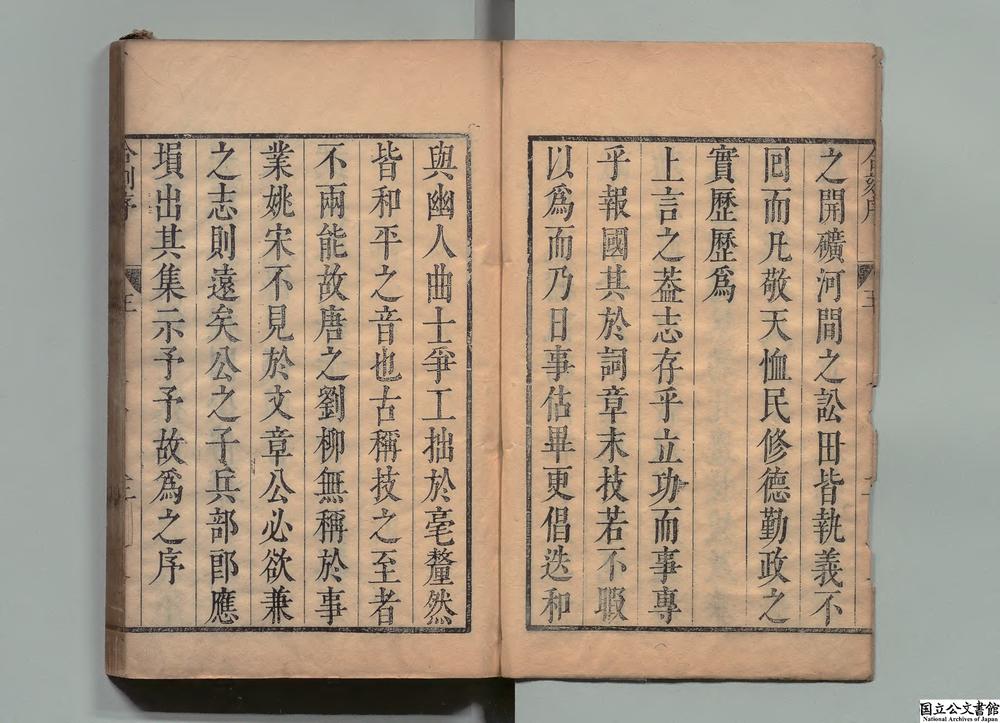 之開礦河間之訟田皆執義不
囘而凡敬天恤民修德勤政之
實歷歷爲
上言之葢志存乎立功而事專
乎報國其於詞章末技若不暇
以爲而乃日事估畢更倡迭和
與幽人曲士爭工拙於毫釐然
皆和平之音也古稱技之至者
不兩能故唐之劉柳無稱於事
業姚宋不見於文章公必欲兼
之志則遠矣公之子兵部郎應
塤出其集示予予故爲之序
国立公文書館
National Archives of Japan